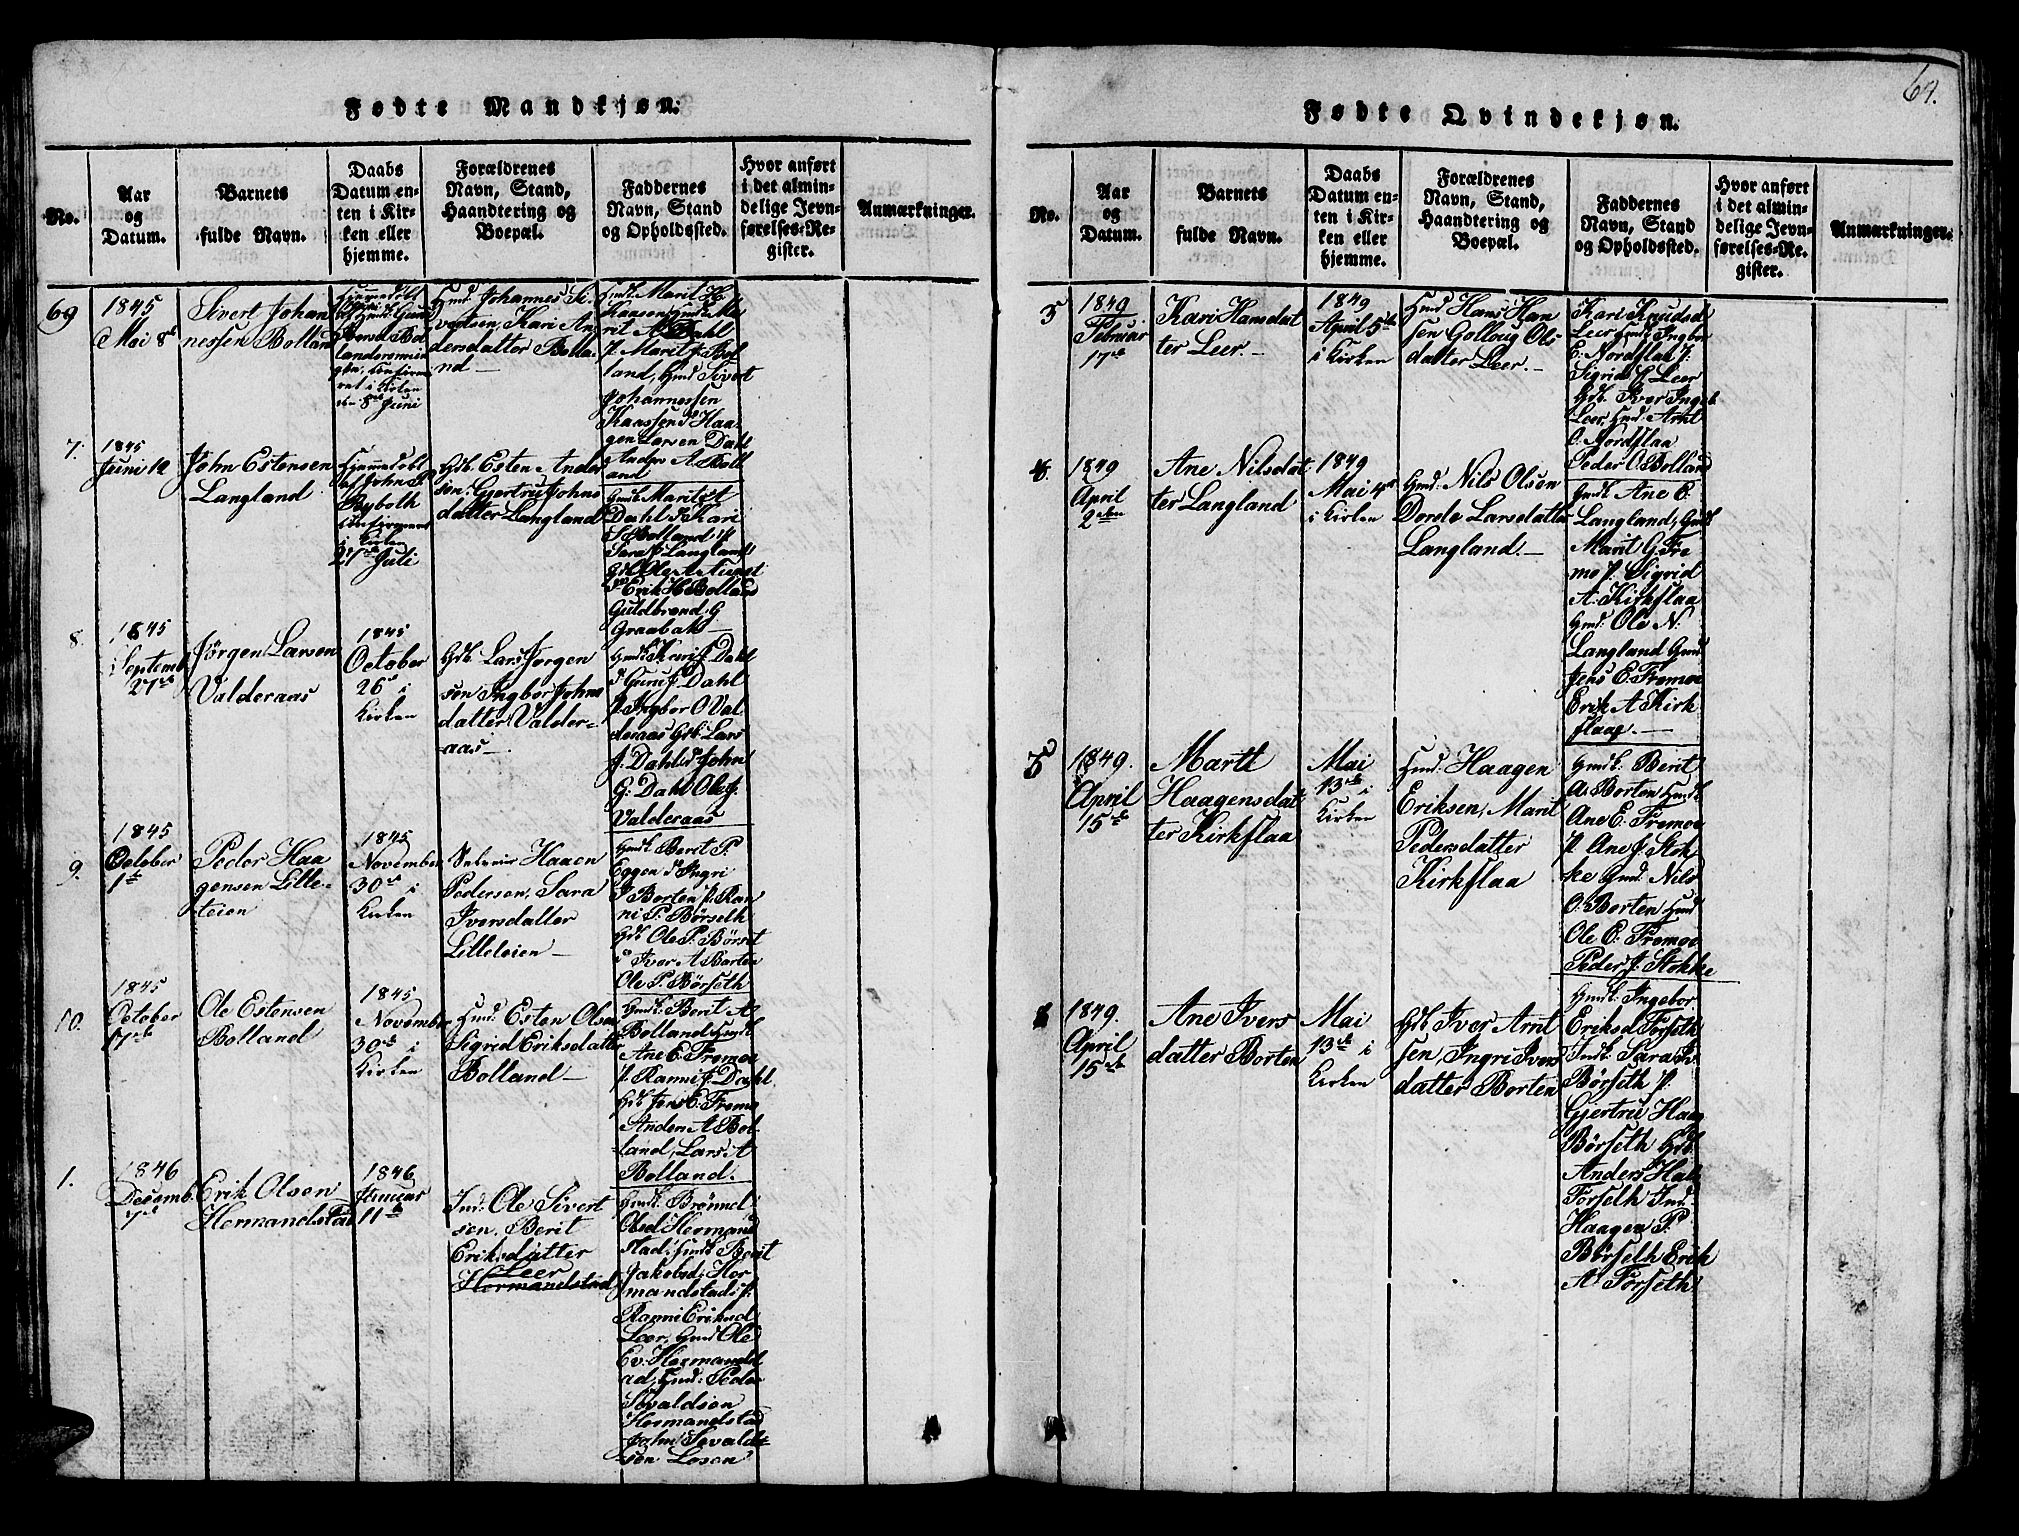 69.
Fødte Mandkjøn.
No.
Aar
og
Datum.
Barnets
fulde Navn.
Daabs
Datum en-
ten i Kir-
ken eller
hjemme.
Forældrenes
Navn, Stand,
Haandtering og
Boepæl.
Faddernes
Navn, Stand
og Opholdssted.
Hvor anført
i det almin-
delige Jevn-
førelses-Re-
gister.
Anmærkninger.
69
1845
Mai 8de
Sivert Johan
nessen Bolland
Hjemmedøbt
landersmin
ret i Kirken
8de Juni
Gmd. Johannes Si
vertsen, Kari An
dersdatter Bolla
nd —
Gmdk Marit H.
rit A Dahl
P. Marit J. Bol
land, Gmd Sivert
Johannessen
Kaassen S Haa
gen Larsen Dahl
Anders A Boll
and
7.
1845
Juni 12
John Estensen
Langland
Hjemmedøbt
af John P
Bybolh
i Kirken
27de Juli
Gdb. Esten Ander
sen, Gjertru Johns
datter Langland
Gmdk Marit St
Dahl S Kari
S Bolland P.
Sara J. Langland
Gdb. Ole A
Erik H Bolland
Guldbrand. G
Graabak —
8.
1845
Septemb.
27de
Jørgen Larsen
Valderaas
1845
October
26de i
Kirken
Gdb. Lars Jørgen
sen Ingbor Johns
datter Valder-
-aas —
Gmdk Kari J. Dahl
S Guru J Dahl
P. Ingbor O Val
deraas Gdb. Lars
J. Dahl S John
G. Dahl Ole J.
Valderaas
9.
1845
October
1de
Peder Haa
gensen Lille-
teien
1845
November
30de i
Kirken
Selveier Haaen
Pedersen, Sara
Iversdatter
Lilleteien —
Gmdk Berit P.
Eggen S Ingri
J. Borten P. Ran
ni P. Børseth
Gdb Ole P. Børset
S Iver A Borten
Ole P. Børseth
10.
1845
October
17de
Ole Estensen
Bolland
1845
November
30de i
Kirken
Gmd. Esten Olsen
Sigrid Eriksdatter
Bolland —
Gmdk Berit A
Bolland Gmdk
Ane E. Fremoe
P. Ranni J. Dahl
Gdb Jens E. Fremo
Anders A Bol-
-land, Lars A
Bolland.
1.
1846
Desemb.
7de
Erik Olsen
Hermandstad
1846
Januar
11de
Ind. Ole Sivert
sen. Berit
Eriksdatter
Leer
Hermandstad
Gmdk. Brønnel
Olsd Hermand
stad, Gmdk Berit
Jakobsd, Her
mandstad P.
Ranni Eriksd
Leer, Gmd Ole
Ev. Hermandst
ad, Gmd. Peder
Sivaldsen
Hermandstad
John Sevald-
sen Losen
Fødte Qvindekjøn.
No.
Aar
og
Datum.
Barnets
fulde Navn.
Daabs
Datum en-
ten i Kir-
ken eller
hjemme.
Forældrenes
Navn, Stand,
Haandtering og
Boepæl.
Faddernes
Navn, Stand
og Opholdssted.
Hvor anført
i det almin-
delige Jevn-
førelses-Re-
gister.
Anmærkninger.
3
1849
Februar
17de
Kari Hansdat
ter Leer. —
1849
April 5te
i Kirken
Gmd Hans Han
sen Gollaug Ols
datter Leer. —
Kari Knudsd
Leer Gmdk Ingbor
E. Nordflaa P.
Sigrid J. Leer
Gdb. Iver Ingeb.
Leer, Gmd: Arnt
E. Nordflaa
Peder O Bolland
4.
1849
April
2den
Ane Nilsdat
ter Langland
1849
Mai 4de
i Kirken
Gmd: Nils Olsen
Dorde Larsdatter
Langland. —
Gmdk Ane E.
Langland, Gmdk
Marit G. Fre
mo P. Sigrid
A. Kirkflaa
Gmd: Ole N.
Langland Gmd
Jens E. Fremoe
Erik A Kirk
flaa. —
5
1849.
April
15de
Marit
Haagensdat
ter Kirkflaa
Mai
13de i
Kirken
Gmd: Haagen
Eriksen, Marit
Pedersdatter
Kirkflaa
Gmdk Berit
A. Borten Gmdk
Ane E. Fremoe
P. Ane J. Stok
ke Gmd. Nils
O. Borten Gmd
Ole E. Fremoe
Peder J. Stokke
1849.
April
15de
Ane Ivers
datter Borten
Mai
13de i
Kirken
Gdb Iver Arnt
sen, Ingri Ivers
datter Borten
Gmdk. Ingebor
Eriksd Forseth
Indk. Sara Iv.
Børseth P.
Gjertru Haag
Børseth Gdb.
Anders Hal
Forseth Ind.
Haagen P.
Børseth Erik
A. Forseth